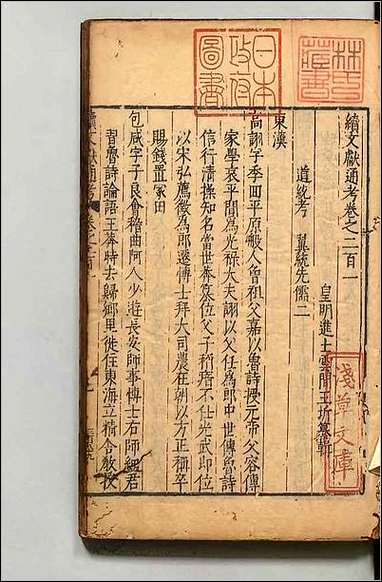 續文獻通考卷之二百一
皇明進士雲間王圻纂輯
道統考　翼統先儒二
東漢
高詡字季回平原般人曾祖父嘉以魯詩授元帝父容傳
家學哀平間為光祿大夫詡以父任為郎中世傳魯詩
信行清操知名當世莽篡位父子稱瘖不仕光武即位
以宋弘薦徵為郎遷博士拜大司農在朝以方正稱卒
賜錢置冢田
包咸字子良會稽曲阿人少遊長安師事博士右師細君
習魯詩論語王莽時去歸鄉里徙住東海立精舍教授
日本
政府
圖書
林氏
藏書
淺草文庫